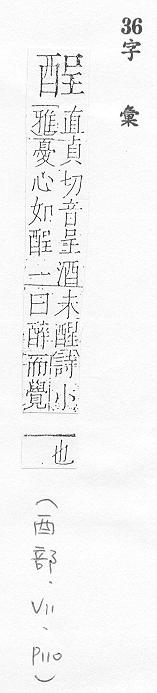 36字 彙
酲
直貞切音呈酒未醒詩小
雅憂心如酲一曰醉而覺
也
(酉部、VII、P110)